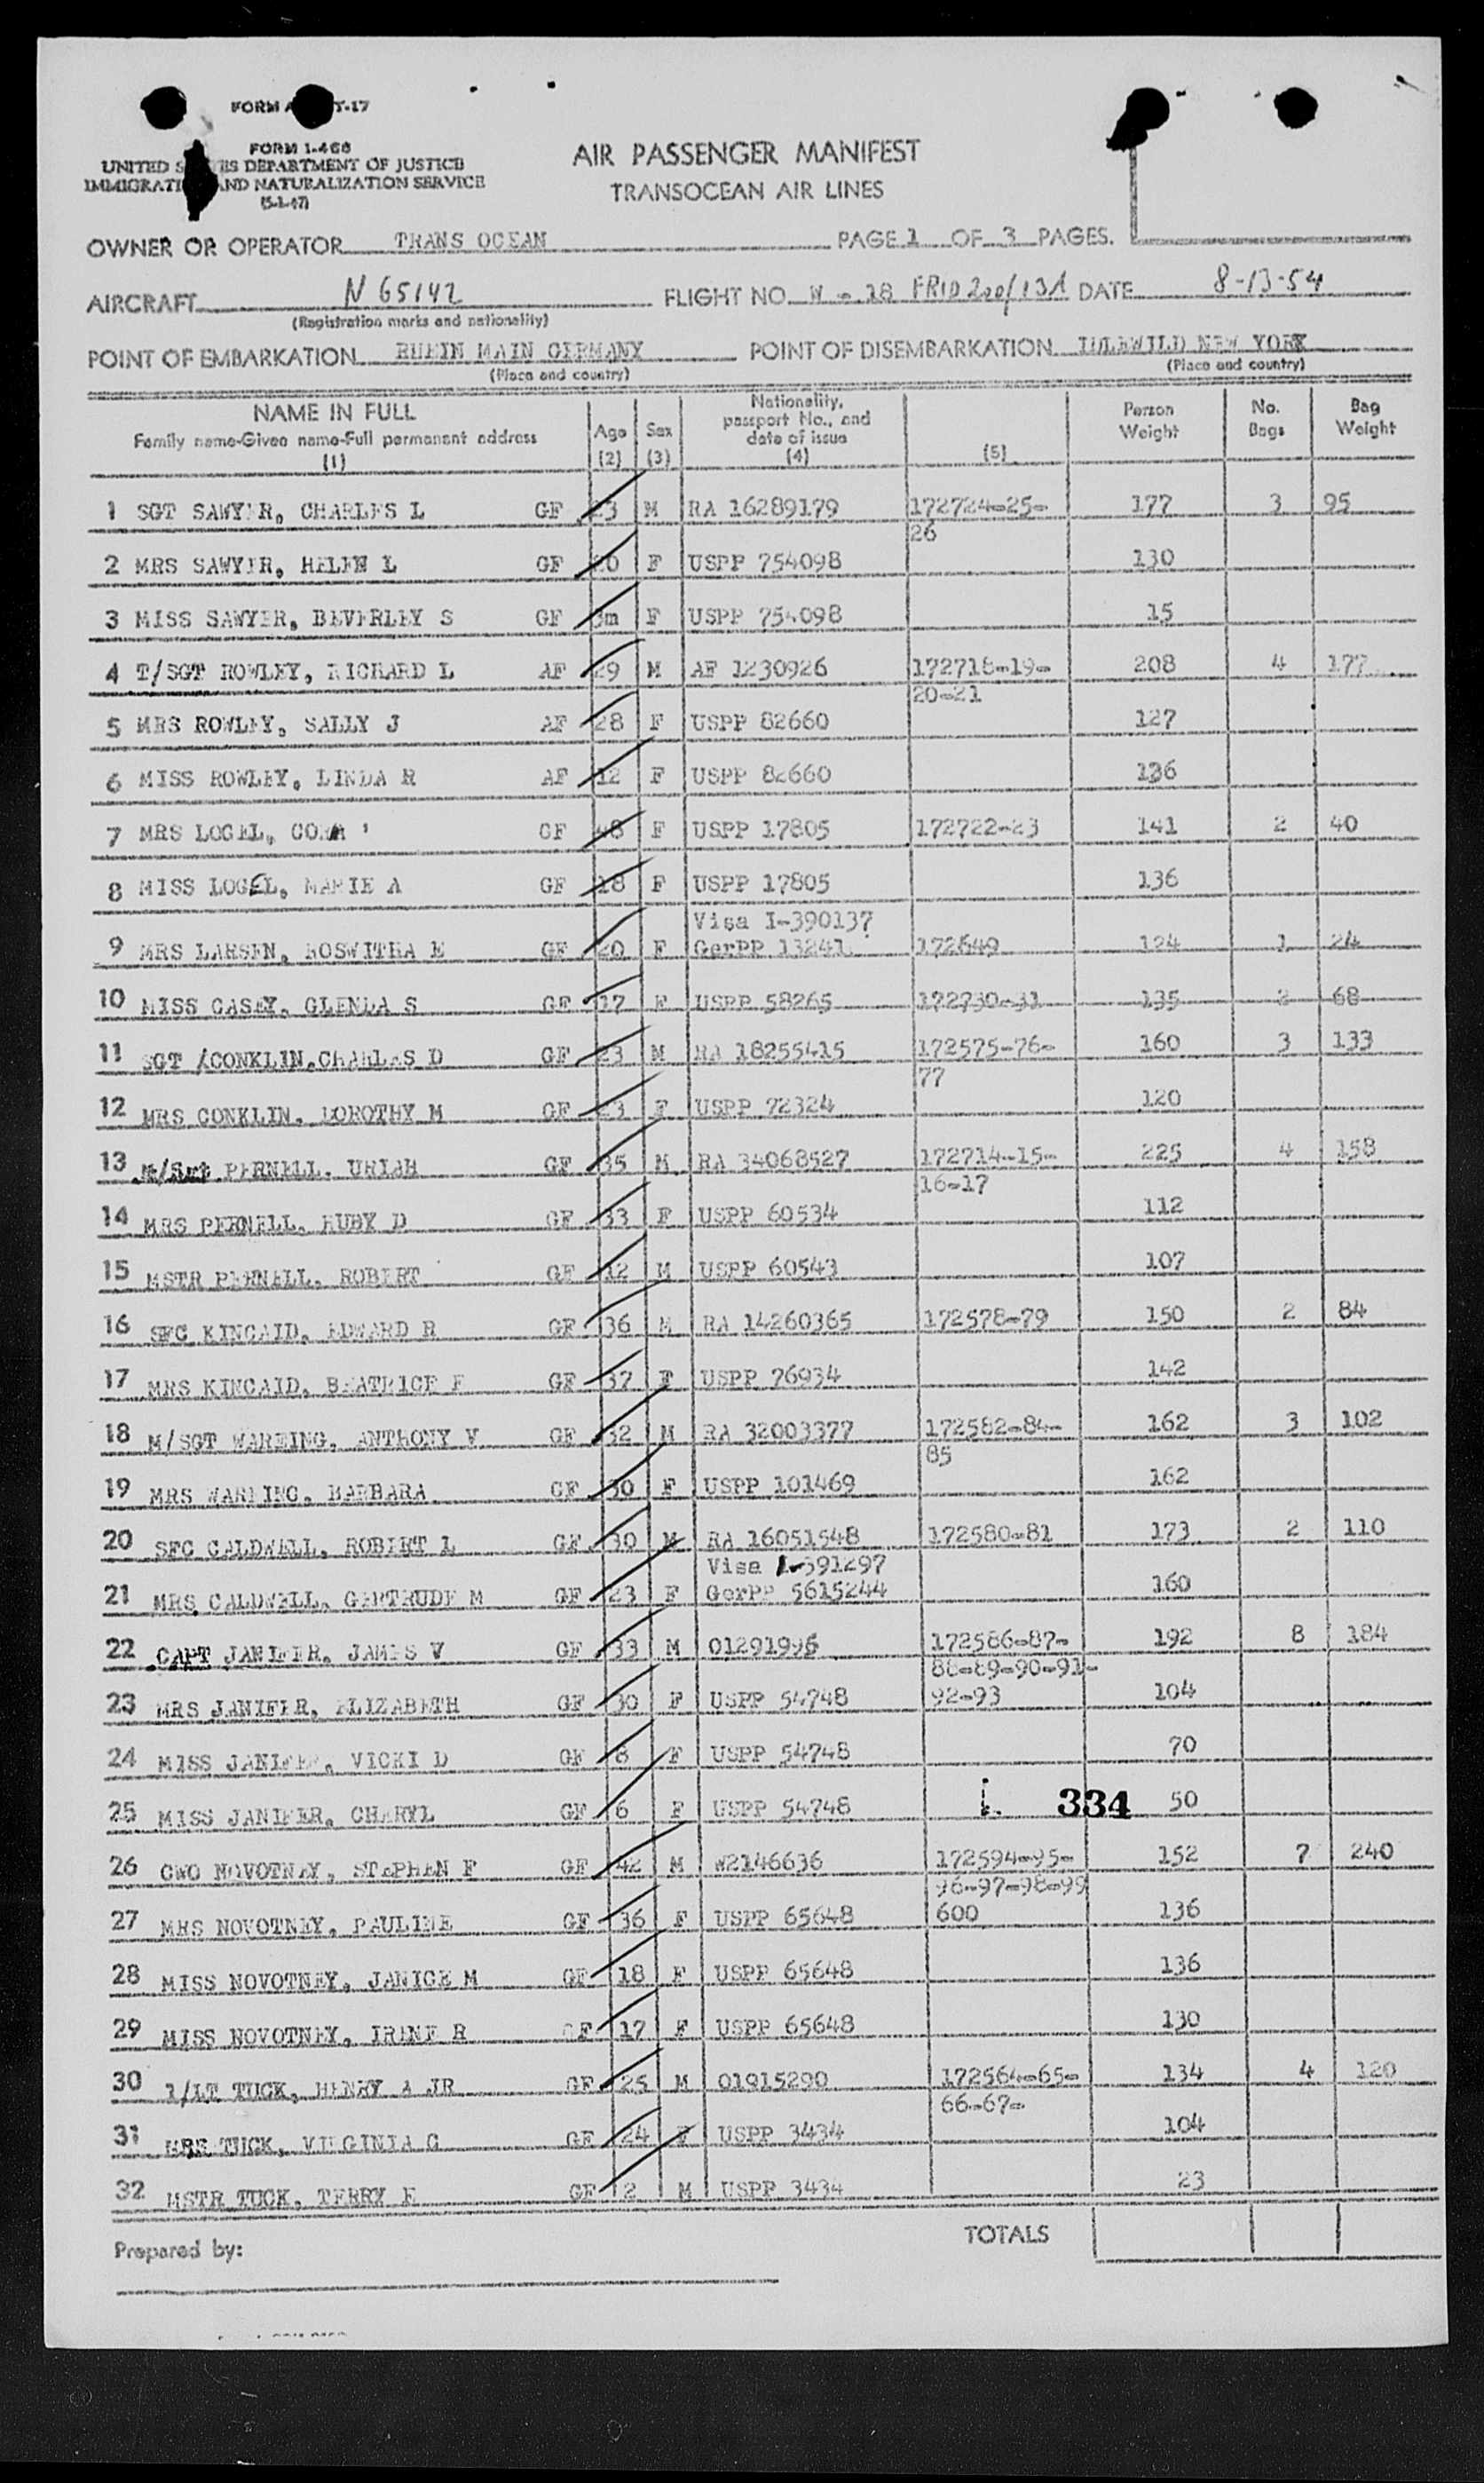 FORM T-17
FORM I-466
UNITED DEPARTMENT OF JUSTICE
AND NATURALIZATION SERVICE
(5-1-47)
AIR PASSENGER MANIFEST
TRANSOCEAN AIR LINES
OWNER OR OPERATOR TRANS OCEAN PAGE 1 OF 3 PAGES.
AIRCRAFT N 65142 FLIGHT NO. DATE 8-13-54
(Registration marks and nationality)
POINT OF EMBARKATION RHEIN MAIN GERMANY POINT OF DISEMBARKATION IDLEWILD NEW YORK
(Place and country) (Place and country)
NAME IN FULL Age Sex Nationality, passport No., and date of issue Person Weight No. Bags Bag Weight
Family name-Given name-Full permanent address
(1) (2) (3) (4) (5)
1 SGT SAWYER, CHARLES L GF 23 M RA 16289179 172724-25- 177 3 95
26
2 MRS SAWYER, HELEN L GF 20 F USPP 754098 130
3 MISS SAWYER, BEVERLEY S GF 3m F USPP 754098 15
4 T/SGT ROWLEY, RICHARD L AF 29 M AF 1230926 172718-19- 208 4 177
20-21
5 MRS ROWLEY, SALLY J AF 28 F USPP 82660 127
6 MISS ROWLEY, LINDA R AF 12 F USPP 82660 136
7 MRS LOGEL, CORA GF 48 F USPP 17805 172722-23 141 2 40
8 MISS LOGEL, MARIE A GF 18 F USPP 17805 136
Visa I-390137
9 MRS LARSEN, ROSWITHA E GF 20 F GerPP 13241 172649 124 1 24
10 MISS CASEY, GLENDA S GF 17 F USPP 58265 172730-31 135 2 68
11 SGT /CONKLIN,CHARLES D GF 23 M RA 18255415 172575-76- 160 3 133
77
12 MRS CONKLIN, DOROTHY M GF 23 F USPP 72324 120
13 M/Sgt PERNELL, URIAH GF 35 M RA 34068527 172714-15- 225 4 158
16-17
14 MRS PERNELL, RUBY D GF 33 F USPP 60534 112
15 MSTR PERNELL, ROBERT GF 12 M USPP 60543 107
16 SFC KINCAID, EDWARD R GF 36 M RA 14260365 172578-79 150 2 84
17 MRS KINCAID, BEATRICE F GF 37 F USPP 76934 142
18 M/SGT WARMING, ANTHONY V GF 32 M RA 32003377 172582-84- 162 3 102
85
19 MRS WARMING, BARBARA GF 30 F USPP 101469 162
20 SFC CALDWELL, ROBERT L GF 30 M RA 16051548 172580-81 173 2 110
Visa I-391297
21 MRS CALDWELL, GERTRUDE M GF 23 F GerPP 5615244 160
22 CAPT JANIFER, JAMES V GF 33 M 01291995 172586-87- 192 8 184
88-89-90-91-
23 MRS JANIFER, ELIZABETH GF 30 F USPP 54748 92-93 104
24 MISS JANIFER, VICKI D GF 8 F USPP 54748 70
25 MISS JANIFER, CHERYL GF 6 F USPP 54748 334 50
26 CWO NOVOTNEY, STEPHEN F GF 42 M W2146636 172594-95- 152 7 240
96-97-98-99
27 MRS NOVOTNEY, PAULINE GF 36 F USPP 65648 600 136
28 MISS NOVOTNEY, JANICE M GF 18 F USPP 65648 136
29 MISS NOVOTNEY, IRENE R GF 17 F USPP 65648 130
30 1/LT TUCK, HENRY A JR GF 25 M 01915290 172564-65- 134 4 120
66-67-
31 MRS TUCK, VIRGINIA C GF 24 F USPP 3434 104
32 MSTR TUCK, TERRY E GF 2 M USPP 3434 23
TOTALS
Prepared by: